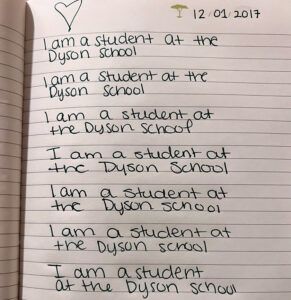 12/01/2017
I am a student at the
Dyson School
I am a student at the
Dyson School
I am a student at
the Dyson School
I am a student at
the Dyson School
I am a student at
the Dyson School
I am a student at
the Dyson School
I am a student
at the Dyson School